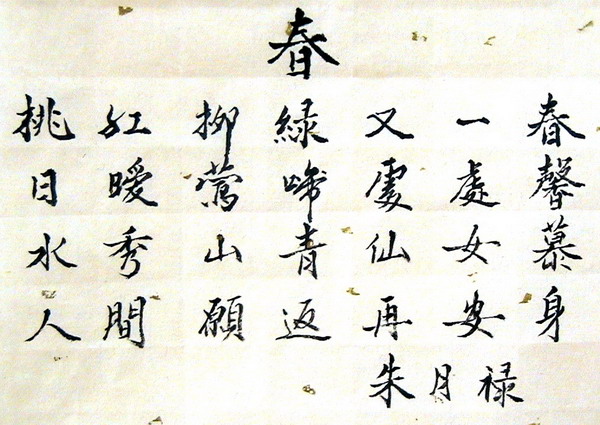 春
桃紅柳緑又一春
日暖鶯啼處處馨
水秀山青仙女慕
人間願返再安身
朱月禄